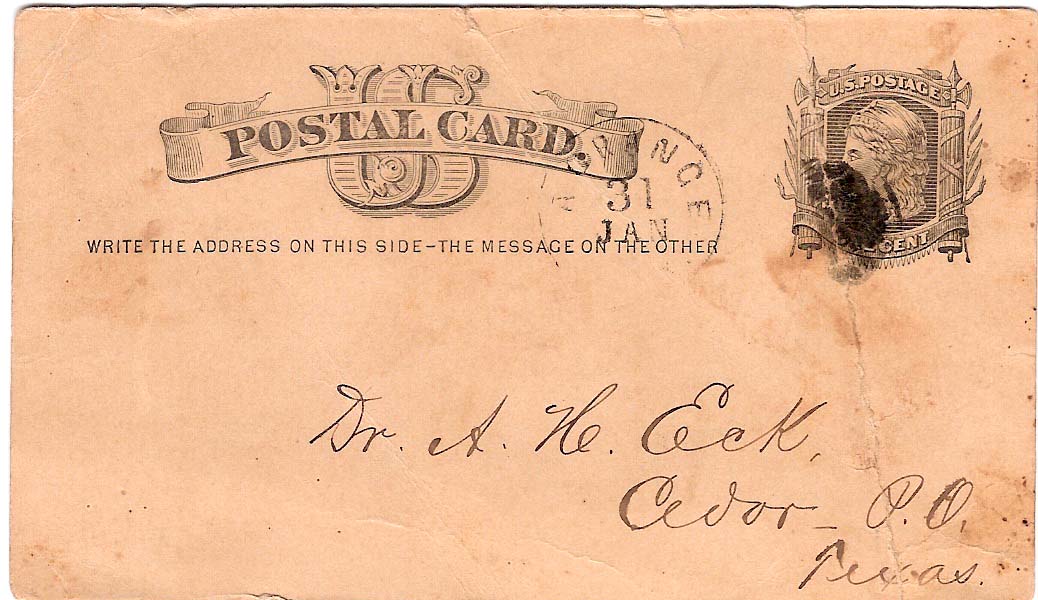 US
POSTAL CARD.
U.S. POSTAGE
CENT
WRITE THE ADDRESS ON THIS SIDE–THE MESSAGE ON THE OTHER
31
JAN
Dr. A. H. Eck,
Cedor – P.O.
Texas.